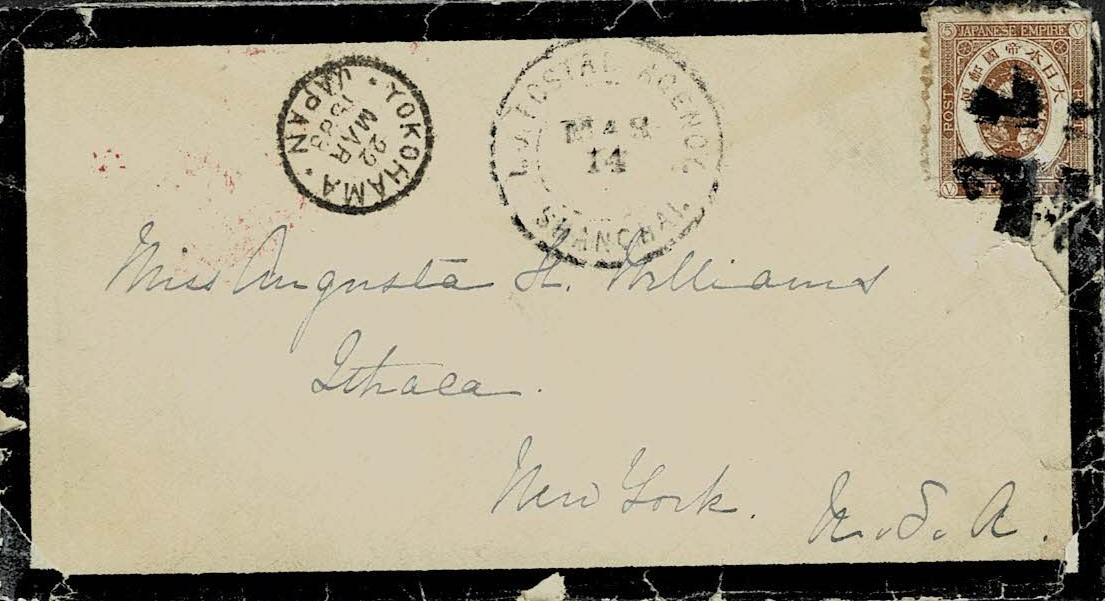 5 JAPANESE EMPIRE V
大日本帝國郵便
POST
V
YOKOHAMA
22
MAR
1883
JAPAN
POSTAL AGENCY
MAR
14
SHANGHAI.
Miss Augusta H. Williams
Ithaca.
New York. U.S.A.